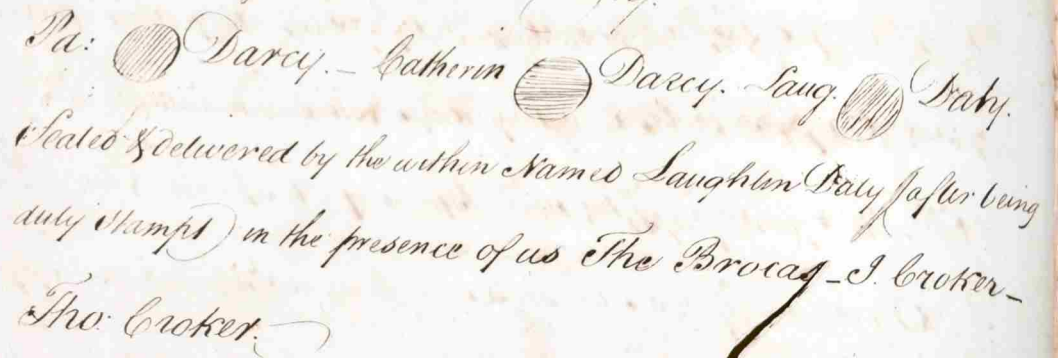 Pa: Darcy. – Catherin Darcy. Laug. Daly.
Sealed & delivered by the within Named Laughlin Daly (after being
duly Stampt) in the presence of us The Brocas – J. Croker –
Tho: Croker.